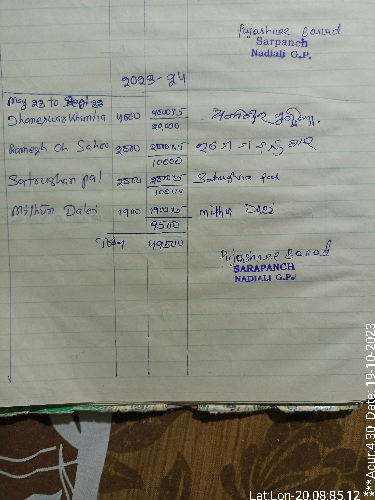 Pujashree Barad
Sarpanch
Nadiali G.P.
2023-24
May 23 to Sept 23
Dhaneswar Khuntia 4000 4000x5
20,000
Ramesh Ch Sahoo 2500 2500x5
10000
Satrughan pal 2500 2500x5
10000 Satrughna pal
Mithun Dalei 1900 1900x5 mithu Dalei
9500
49500
Pujashree Barad
SARAPANCH
NADIALI G.P.
Lat:Lon-20.08:85.12 ***Acur:4.30 Date: 19-10-2023